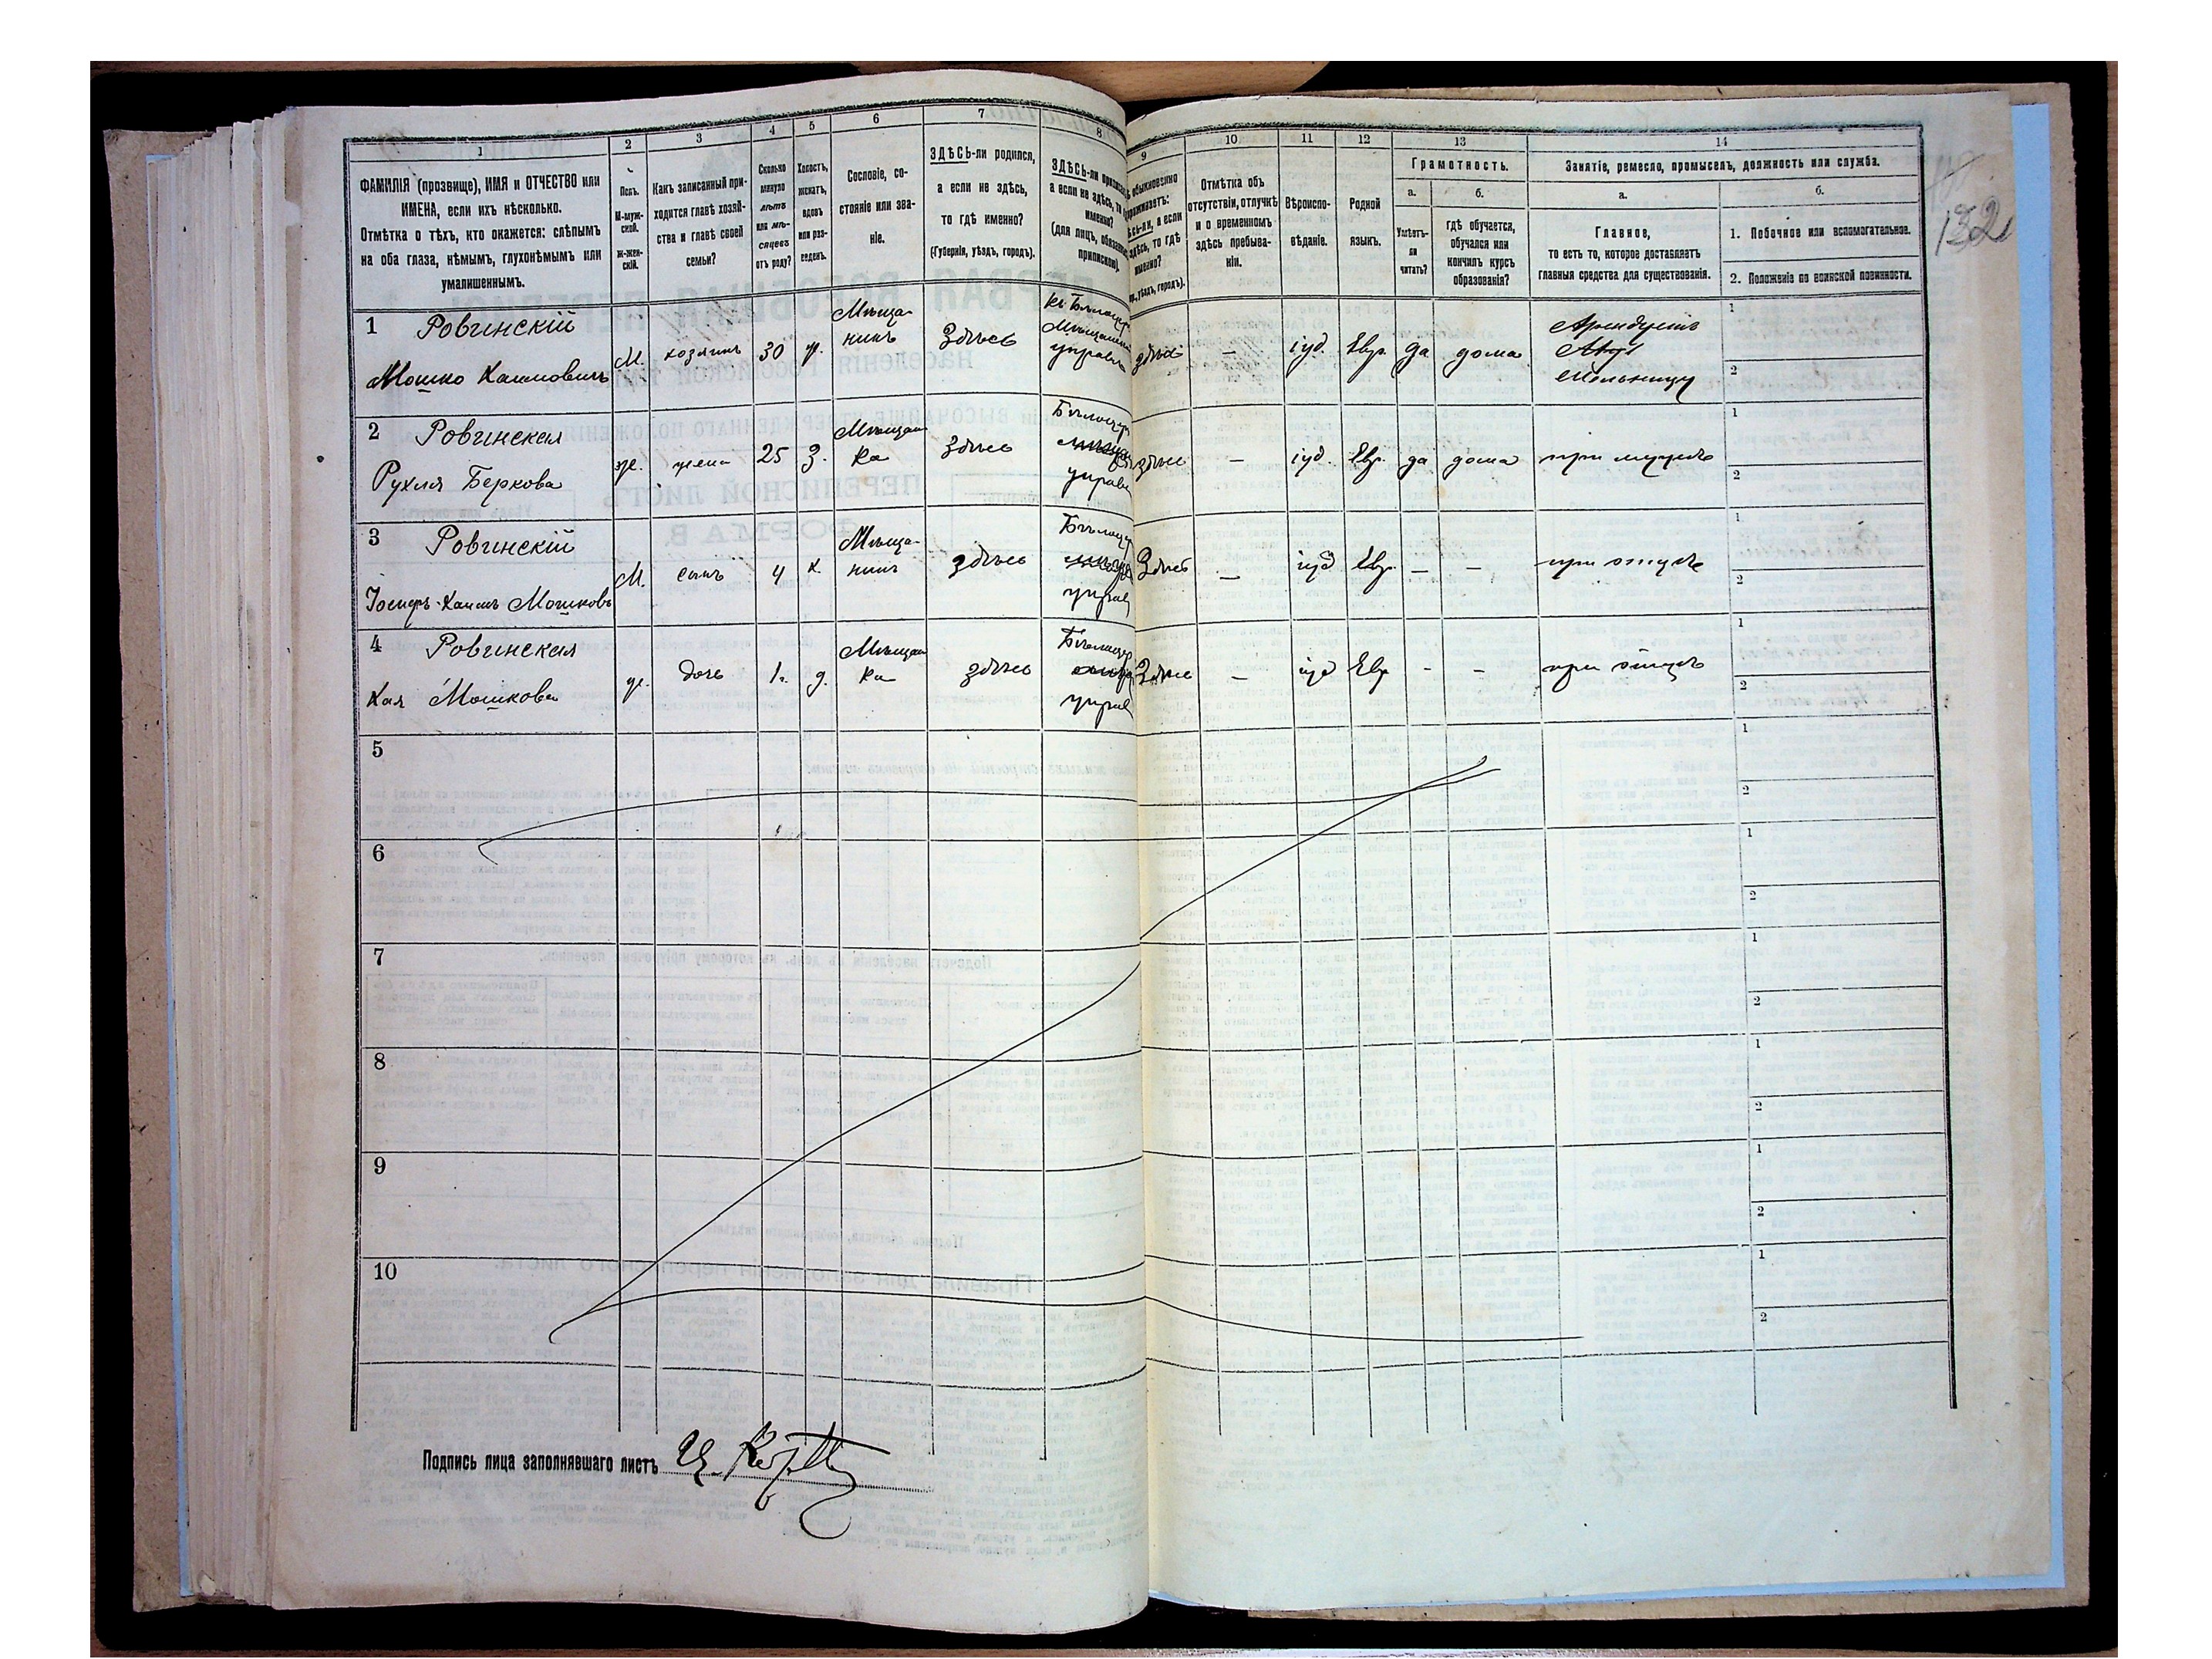 1 2 3 4 5 6 7 8 9 10 11 12 13 14
ФАМИЛІЯ (прозвище), ИМЯ и ОТЧЕСТВО или
ИМЕНА, если ихъ нѣсколько.
Отмѣтка о тѣхъ, кто окажется: слѣпымъ
на оба глаза, нѣмымъ, глухонѣмымъ или
умалишеннымъ.
Полъ.
М-муж-
ской.
Ж-жен-
скій.
Какъ записанный при-
ходится главѣ хозяй-
ства и главѣ своей
семьи?
Сколько
минуло
лѣтъ
или мѣ-
сяцевъ
отъ роду?
Холостъ,
женатъ,
вдовъ
или раз-
веденъ.
Сословіе, со-
стояніе или зва-
ніе.
ЗДѢСЬ-ли родился,
а если не здѣсь,
то гдѣ именно?
(Губернія, уѣздъ, городъ).
ЗДѢСЬ-ли
а если не здѣсь, то
именно?
(для лицъ,
припискою).
обыкновенно
проживаетъ:
а если
здѣсь, то гдѣ
именно?
уѣздъ, городъ).
Отмѣтка объ
отсутствіи, отлучкѣ
и о временномъ
здѣсь пребыва-
ніи.
Вѣроиспо-
вѣданіе.
Родной
языкъ.
Грамотность.
а. б.
Умѣетъ-
ли
читать?
гдѣ обучается,
обучался или
кончилъ курсъ
образованія?
Занятіе, ремесло, промыселъ, должность или служба.
а. б.
Главное,
то есть то, которое доставляетъ
главныя средства для существованія.
1. Побочное или вспомогательное.
2. Положеніе по воинской повинности.
132
1 Ровинскій
Мошко Хаимовичъ
М. хозяинъ 30 ж.
Мѣща-
нинъ
Здѣсь
управ
здѣсь – іуд. Евр. да дома
Арендуетъ
мельницу
1
2
2 Ровинская
Рухля Беркова
ж. жена 25 З.
Мѣщан
ка
Здѣсь
управ
здѣсь – іуд. Евр. да дома при мужѣ
1
2
3 Ровинскій
Іосифъ-Хаимъ Мошковъ
М. сынъ 4 х.
Мѣща-
нинъ
здѣсь
управ
Здѣсь – іуд Евр. – – при отцѣ
1
2
4 Ровинская
Хая Мошкова
ж. дочь 1 г. д.
Мѣщан
ка
здѣсь
управ
Здѣсь – іуд Евр – – при отцѣ
1
2
5
1
2
6
1
2
7
1
2
8
1
2
9
1
2
10
1
2
Подпись лица заполнявшаго листъ